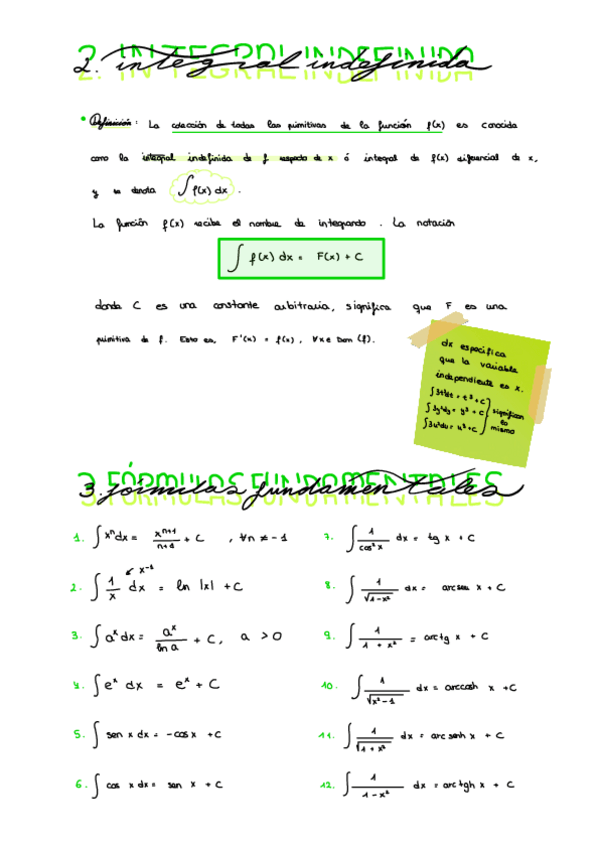 2. integral indefinida
• Definición: La colección de todas las primitivas de la función f(x) es conocida
como la integral indefinida de f respecto de x ó integral de f(x) diferencial de x,
y se denota ∫ f(x) dx .
La función f(x) recibe el nombre de integrando . La notación
∫ f(x) dx = F(x) + C
donde C es una constante arbitraria, significa que F es una
primitiva de f. Esto es, F'(x) = f(x), ∀x ∈ Dom (f).
dx especifica
que la variable
independiente es x.
∫3t²dt = t³ + C
∫3y²dy = y³ + C
∫3u²du = u³ + C
significan
lo
mismo
3. fórmulas fundamentales
1. ∫xⁿdx = xⁿ⁺¹/n+1 + C , ∀n ≠ -1
2. ∫ 1/x dx = ln |x| + C
x⁻¹
3. ∫aˣ dx = aˣ/ln a + C, a > 0
4. ∫eˣ dx = eˣ + C
5. ∫ sen x dx = -cos x + C
6. ∫ cos x dx = sen x + C
7. ∫ 1/cos² x dx = tg x + C
8. ∫ 1/√1-x² dx = arcsen x + C
9. ∫ 1/1 + x² = arctg x + C
10. ∫ 1/√x²-1 dx = arccosh x + C
11. ∫ 1/√1 + x² dx = arcsenh x + C
12. ∫ 1/1-x² dx = arctgh x + C